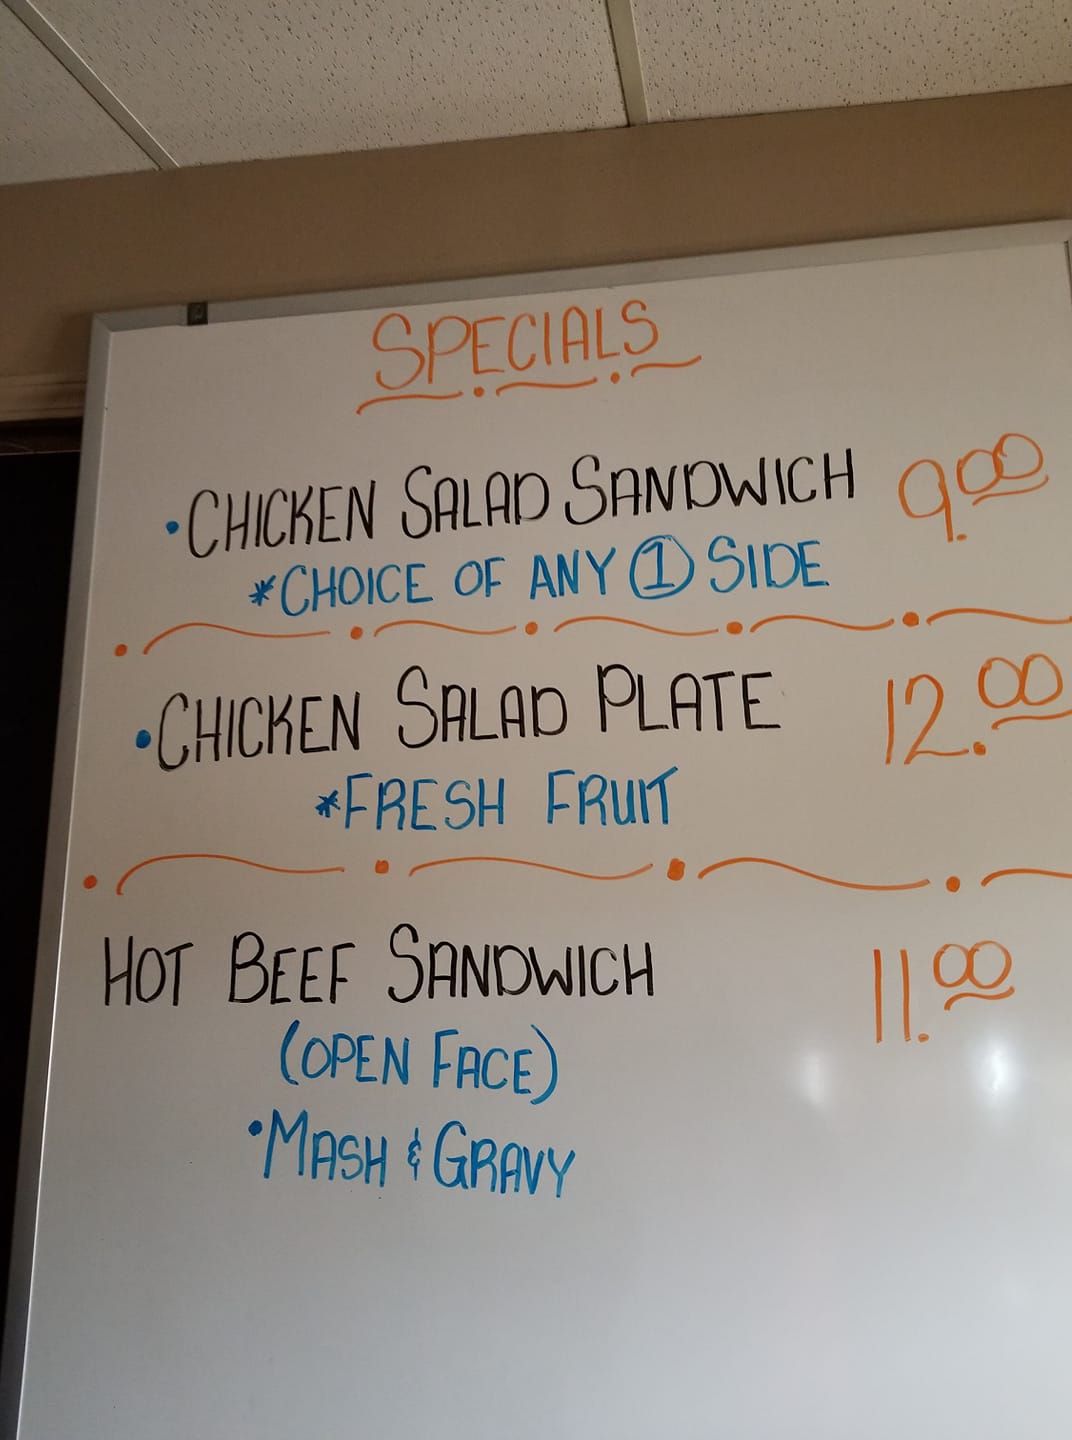 SPECIALS
• CHICKEN SALAD SANDWICH 9.00
*CHOICE OF ANY 1 SIDE
• CHICKEN SALAD PLATE 12.00
*FRESH FRUIT
HOT BEEF SANDWICH 11.00
(OPEN FACE)
• MASH & GRAVY